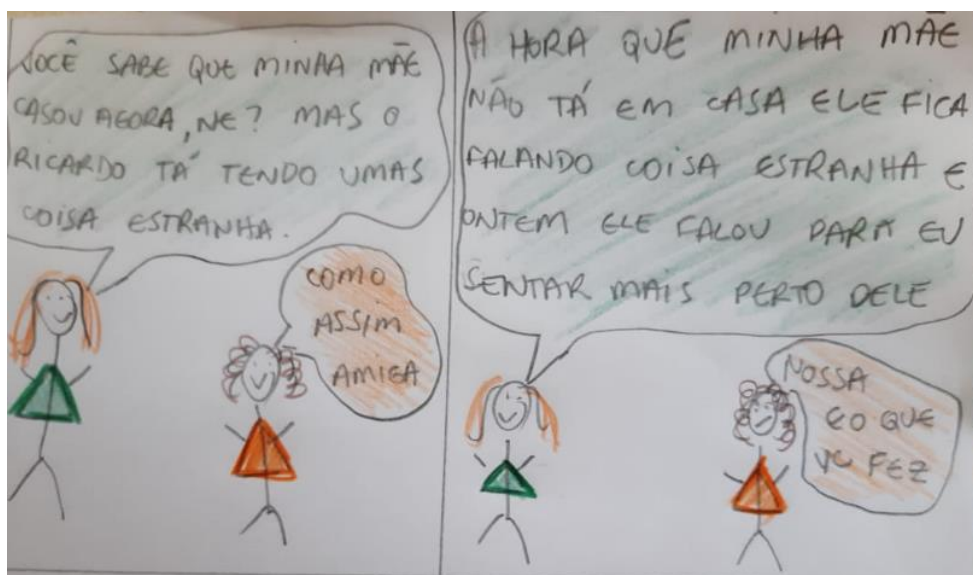 VOCÊ SABE QUE MINHA MÃE
CASOU AGORA, NE? MAS O
RICARDO TÁ TENDO UMAS
COISA ESTRANHA.
COMO
ASSIM
AMIGA
A HORA QUE MINHA MÃE
NÃO TÁ EM CASA ELE FICA
FALANDO COISA ESTRANHA E
ONTEM ELE FALOU PARA EU
SENTAR MAIS PERTO DELE
NOSSA
E O QUE
VC FEZ